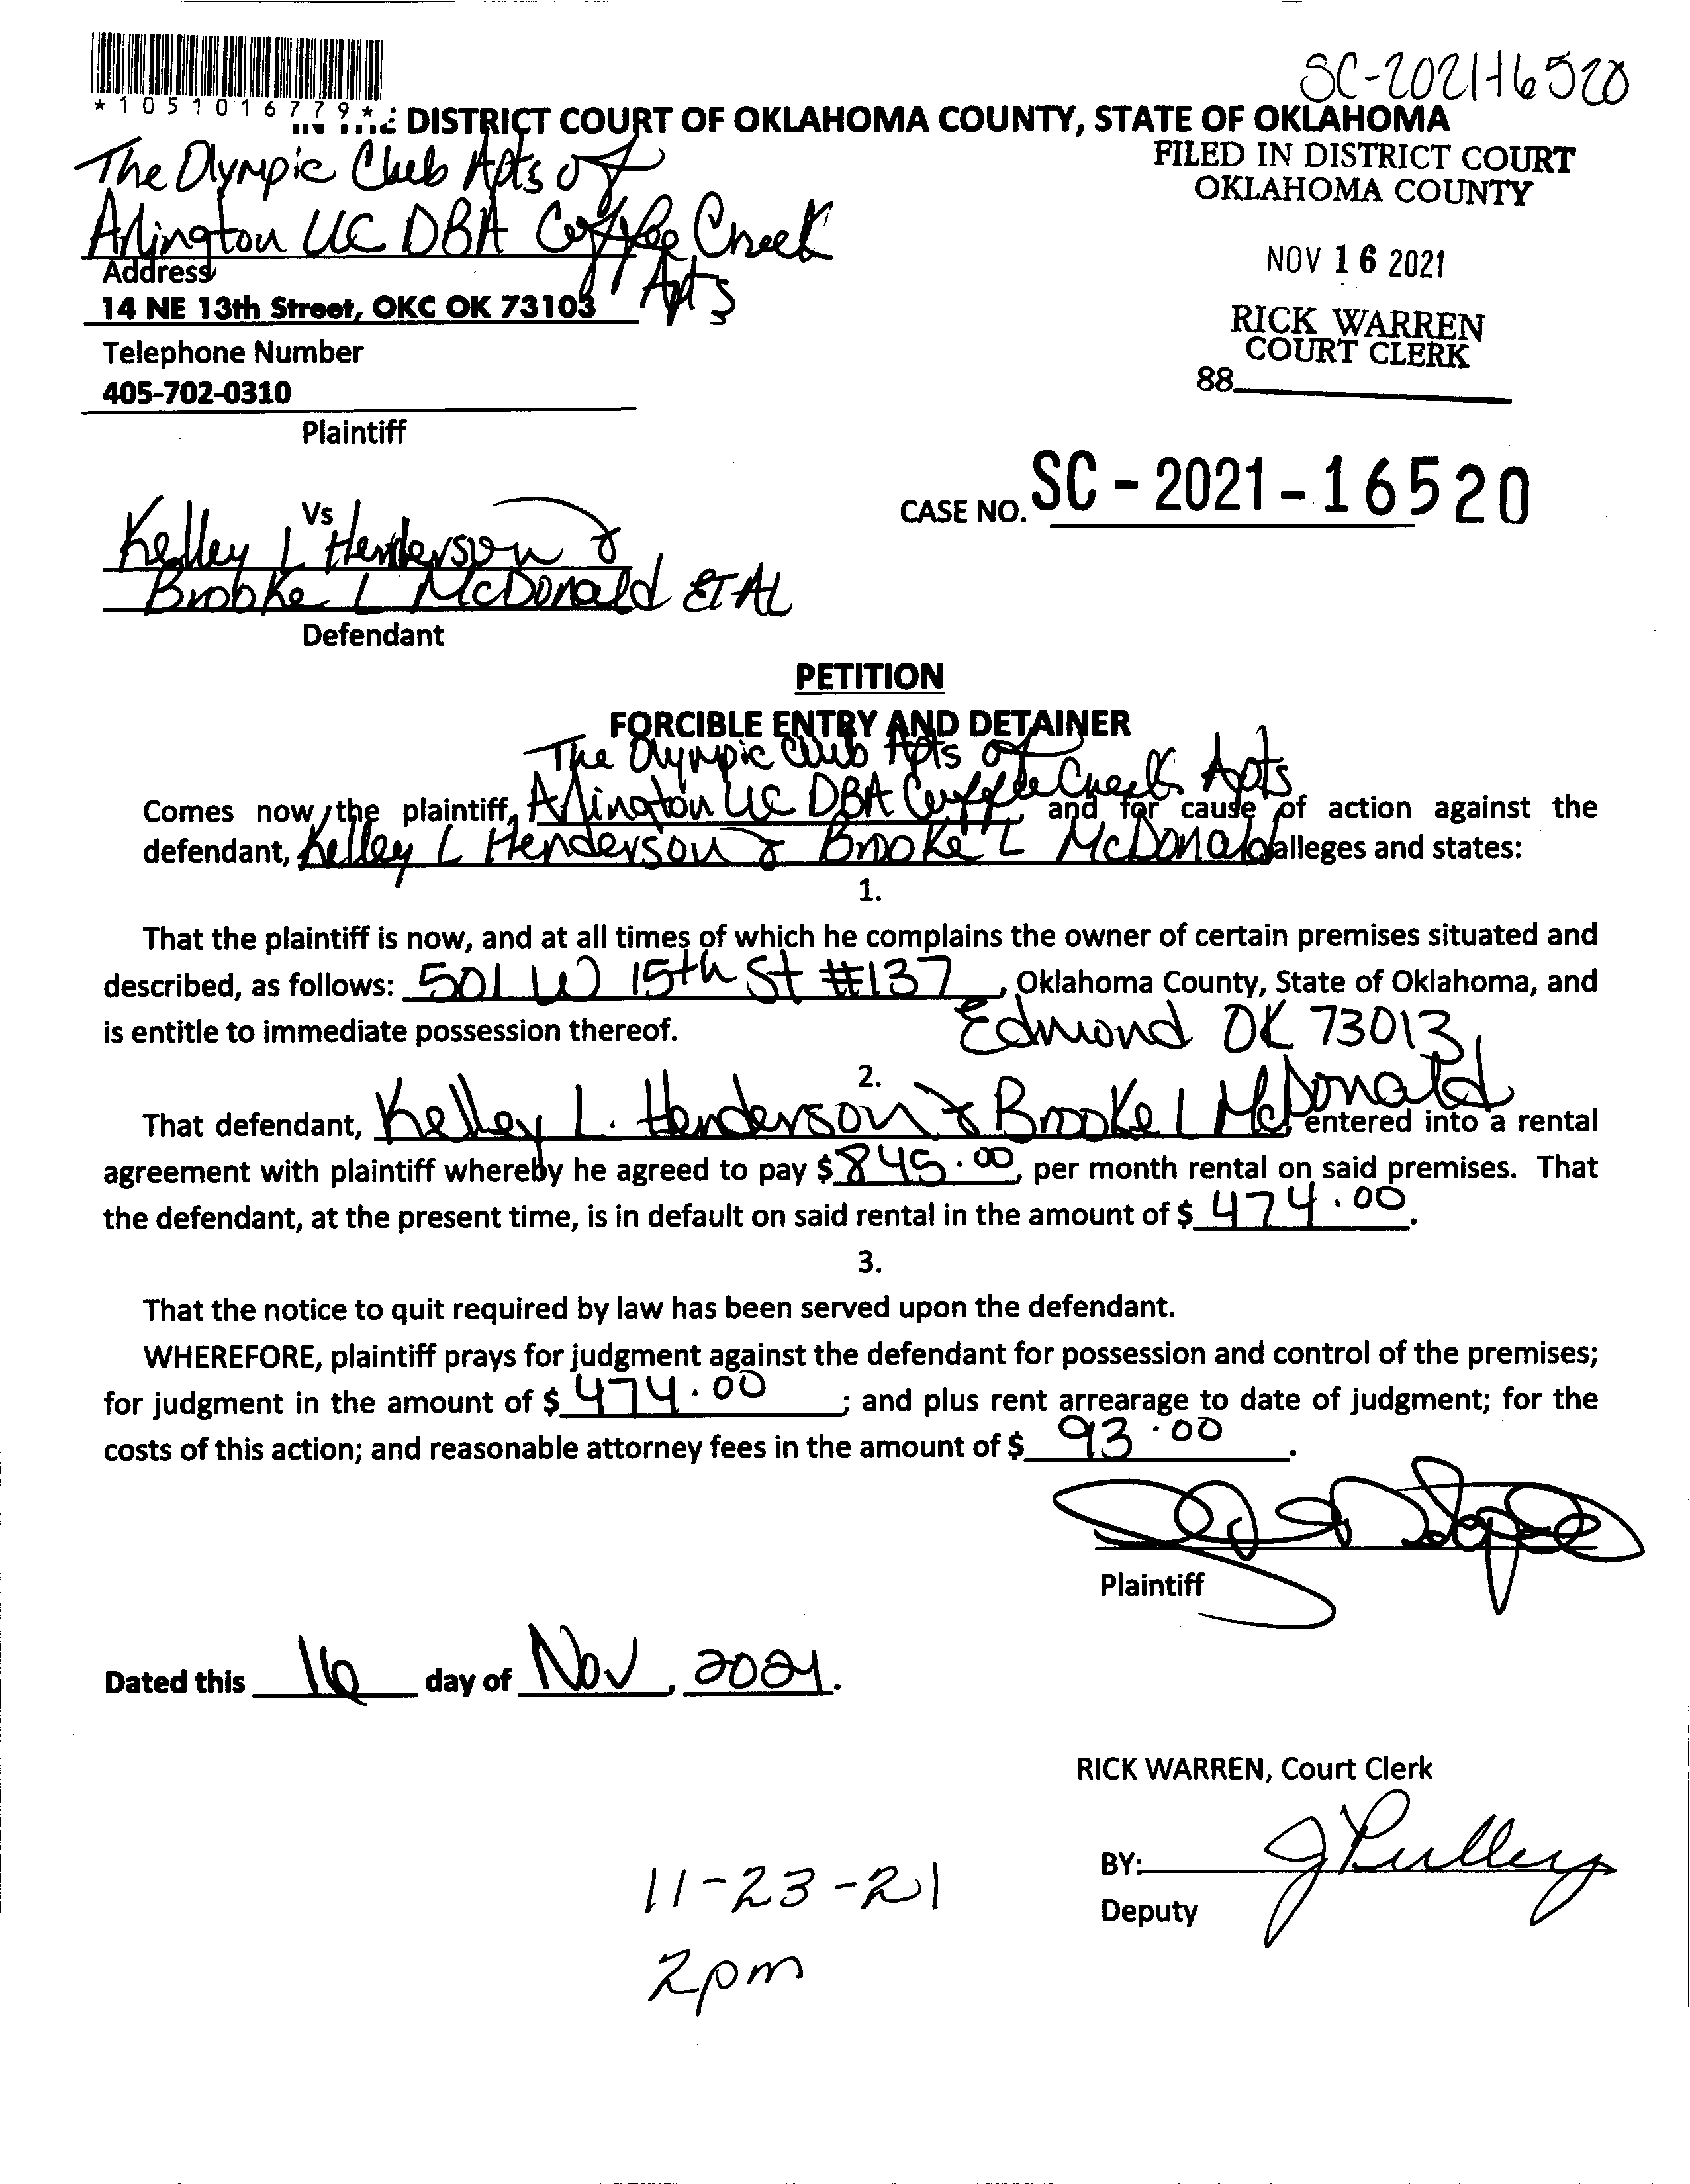 SC-2021-16520
*1051016779*
DISTRICT COURT OF OKLAHOMA COUNTY, STATE OF OKLAHOMA
The Olympic Club Apts of
FILED IN DISTRICT COURT
OKLAHOMA COUNTY
Arlington LLC DBA Coffee Creek
Apts
NOV 16 2021
Address
14 NE 13th Street, OKC OK 73103
RICK WARREN
COURT CLERK
Telephone Number
88
405-702-0310
Plaintiff
CASE NO. SC-2021-16520
Vs
Kelley L Henderson &
Brooke L McDonald ET AL
Defendant
PETITION
FORCIBLE ENTRY AND DETAINER
The Olympic Club Apts of
Comes now, the plaintiff, Arlington LLC DBA Coffee Creek Apts and for cause of action against the
defendant, Kelley L Henderson & Brooke L McDonald alleges and states:
1.
That the plaintiff is now, and at all times of which he complains the owner of certain premises situated and
described, as follows: 501 W 15th St #137, Oklahoma County, State of Oklahoma, and
is entitle to immediate possession thereof. Edmond OK 73013
2.
That defendant, Kelley L. Henderson & Brooke L McDonald entered into a rental
agreement with plaintiff whereby he agreed to pay $ 845.00, per month rental on said premises. That
the defendant, at the present time, is in default on said rental in the amount of $ 474.00.
3.
That the notice to quit required by law has been served upon the defendant.
WHEREFORE, plaintiff prays for judgment against the defendant for possession and control of the premises;
for judgment in the amount of $ 474.00; and plus rent arrearage to date of judgment; for the
costs of this action; and reasonable attorney fees in the amount of $ 93.00.
Plaintiff
Dated this 16 day of Nov, 2021.
RICK WARREN, Court Clerk
BY: J Pulley
Deputy
11-23-21
2pm